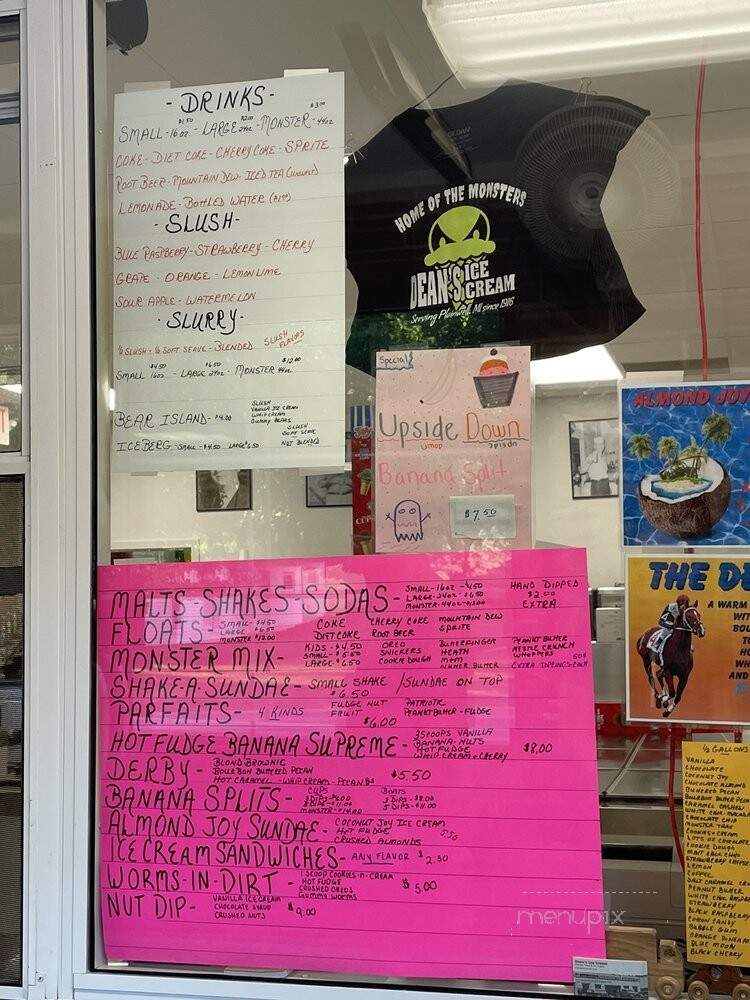 - DRINKS -
$1.50 $2.00 $3.00
SMALL-16oz - LARGE 24oz - MONSTER - 44oz
COKE - DIET COKE - CHERRY COKE - SPRITE
ROOT BEER - MOUNTAIN DEW - ICED TEA
LEMONADE - BOTTLED WATER
- SLUSH -
BLUE RASPBERRY - STRAWBERRY - CHERRY
GRAPE - ORANGE - LEMON LIME
SOUR APPLE - WATERMELON
- SLURRY -
½ SLUSH - ½ SOFT SERVE - BLENDED SLUSH FLAVORS
$4.50 $6.50 $12.00
SMALL 16oz - LARGE 24oz - MONSTER 44oz
BEAR ISLAND - $4.20
SLUSH
VANILLA ICE CREAM
WHIP CREAM
GUMMY BEARS
ICEBERG SMALL - $4.50 LARGE $6.50
SLUSH
SOFT SERVE
NOT BLENDED
HOME OF THE MONSTERS
DEAN'S ICE CREAM
Serving Plainwell, MI since 1976
Special
Upside Down
umop apisdn
Banana Split
$7.50
ALMOND JOY
THE D
A WARM
WIT
BOU
TO
HO
WH
AND
MALTS-SHAKES-SODAS - SMALL-16oz - $4.50 HAND DIPPED
LARGE-24oz - $6.50 $2.00
MONSTER-44oz - $12.00 EXTRA
FLOATS - SMALL - $4.50 COKE CHERRY COKE MOUNTAIN DEW
LARGE - $6.50 DIET COKE ROOT BEER SPRITE
MONSTER $12.00
MONSTER MIX - KIDS - $4.50 OREO BUTTERFINGER PEANUT BUTTER
SMALL - $5.50 SNICKERS HEATH NESTLE CRUNCH
LARGE - $6.50 COOKIE DOUGH M+M WHOPPERS
EXTRA TOPPINGS 50¢ EACH
SHAKE-A-SUNDAE - SMALL SHAKE / SUNDAE ON TOP
$6.50
PARFAITS - 4 KINDS FUDGE NUT PATRIOTIC
FRUIT PEANUT BUTTER - FUDGE
$6.00
HOT FUDGE BANANA SUPREME - 3 SCOOPS VANILLA
BANANA - NUTS
HOT FUDGE
WHIP CREAM + CHERRY
$8.00
DERBY - BLOND BROWNIE
BOURBON BUTTERED PECAN
HOT CARAMEL - WHIP CREAM - PECANS $5.50
BANANA SPLITS - CUPS BOATS
ALMOND JOY SUNDAE - COCONUT JOY ICE CREAM
HOT FUDGE 5.50
CRUSHED ALMONDS
ICE CREAM SANDWICHES - ANY FLAVOR $2.50
WORMS-IN-DIRT - 1 SCOOP COOKIES-N-CREAM
HOT FUDGE
CRUSHED OREOS
GUMMY WORMS
$5.00
NUT DIP - VANILLA ICE CREAM
CHOCOLATE SYRUP
CRUSHED NUTS
$4.00
½ GALLONS
VANILLA
CHOCOLATE
COCONUT JOY
CHOCOLATE ALMOND
BUTTERED PECAN
BOURBON BUTTER PEC
CARAMEL CASHEW
WHITE CHOC MACADA
CHOCOLATE CHIP
MONSTER TRAX
COOKIES+CREAM
LOTS OF CHOCOLATE
COOKIE DOUGH
MINT CHOC CHIP
STRAWBERRY CHEESE
LEMON
COFFEE
SALT CARAMEL
PEANUT BUTTER
WHITE CHOC RASPBERRY
STRAWBERRY
BLACK RASPBERRY
COTTON CANDY
BUBBLE GUM
ORANGE PINEAPP
BLUE MOON
BLACK CHERRY
menupix